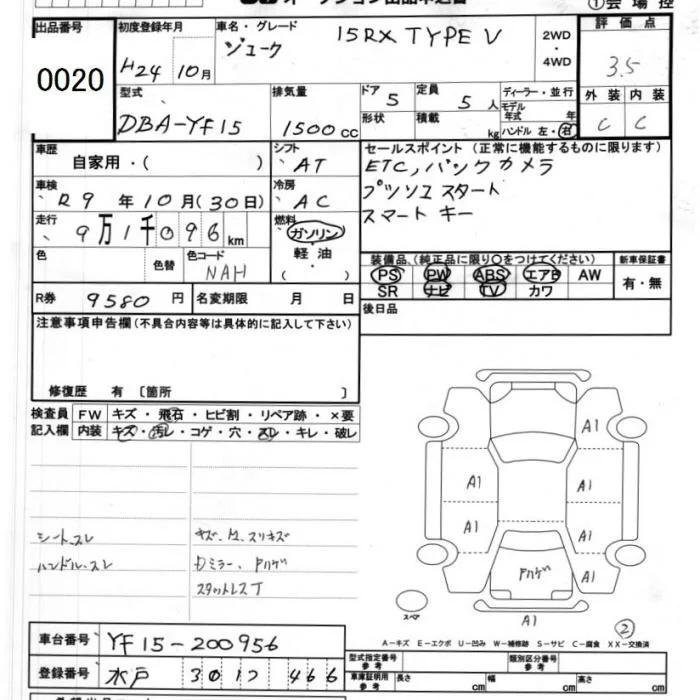 オークション出品申込書
①会場控
出品番号
0020
初度登録年月
H24 10月
車名・グレード
ジューク 15RX TYPE V
2WD
・
4WD
評価点
3.5
外装 内装
C C
型式
DBA-YF15
排気量
1500cc
ドア 5
形状
定員 5人
積載 kg
ディーラー・並行
モデル
年式 年
ハンドル 左・右
車歴
自家用・( )
シフト
AT
セールスポイント(正常に機能するものに限ります)
ETC, バックカメラ
プッシュスタート
スマートキー
車検
R9年10月(30日)
冷房
AC
走行
9万1千096km
燃料
ガソリン
・
軽油
・
( )
色
色替
色コード
NAH
装備品、(純正品に限り○をつけてください)
PS PW ABS エアB AW
SR ナビ TV カワ
新車保証書
有・無
R券 9580円
名変期限 月 日
後日品
注意事項申告欄(不具合内容等は具体的に記入して下さい)
修復歴 有 〔箇所 〕
検査員
記入欄
FW キズ・飛石・ヒビ割・リペア跡・×要
内装 キズ・汚レ・コゲ・穴・スレ・キレ・破レ
シートスレ
ハンドルスレ
キズ、凹、スリキズ
Dミラー、Fハゲ
スタットレスT
A1
A1
A1
A1
A1
A1
Fハゲ
A1
スペア
②
A-キズ E-エクボ U-凹み W-補修跡 S-サビ C-腐食 XX-交換済
車台番号 YF15-200956
登録番号 水戸 301 ソ 466
型式指定番号
参考
類別区分番号
参考
車庫証明用
参考
長さ cm 幅 cm 高さ cm